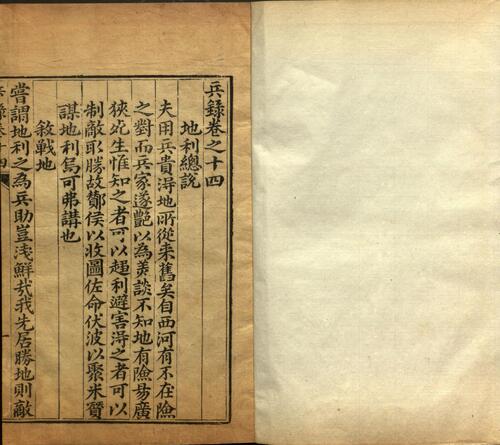 兵錄卷之十四
地利總說
夫用兵貴得地所從来舊矣自西河有不在險
之對而兵家遂艷以為美談不知地有險易廣
狹死生惟知之者可以趨利避害得之者可以
制敵取勝故酇侯以收圖佐命伏波以聚米賛
謀地利烏可弗講也
敘戰地
嘗謂地利之為兵助豈淺鮮哉我先居勝地則敵
兵錄卷十四